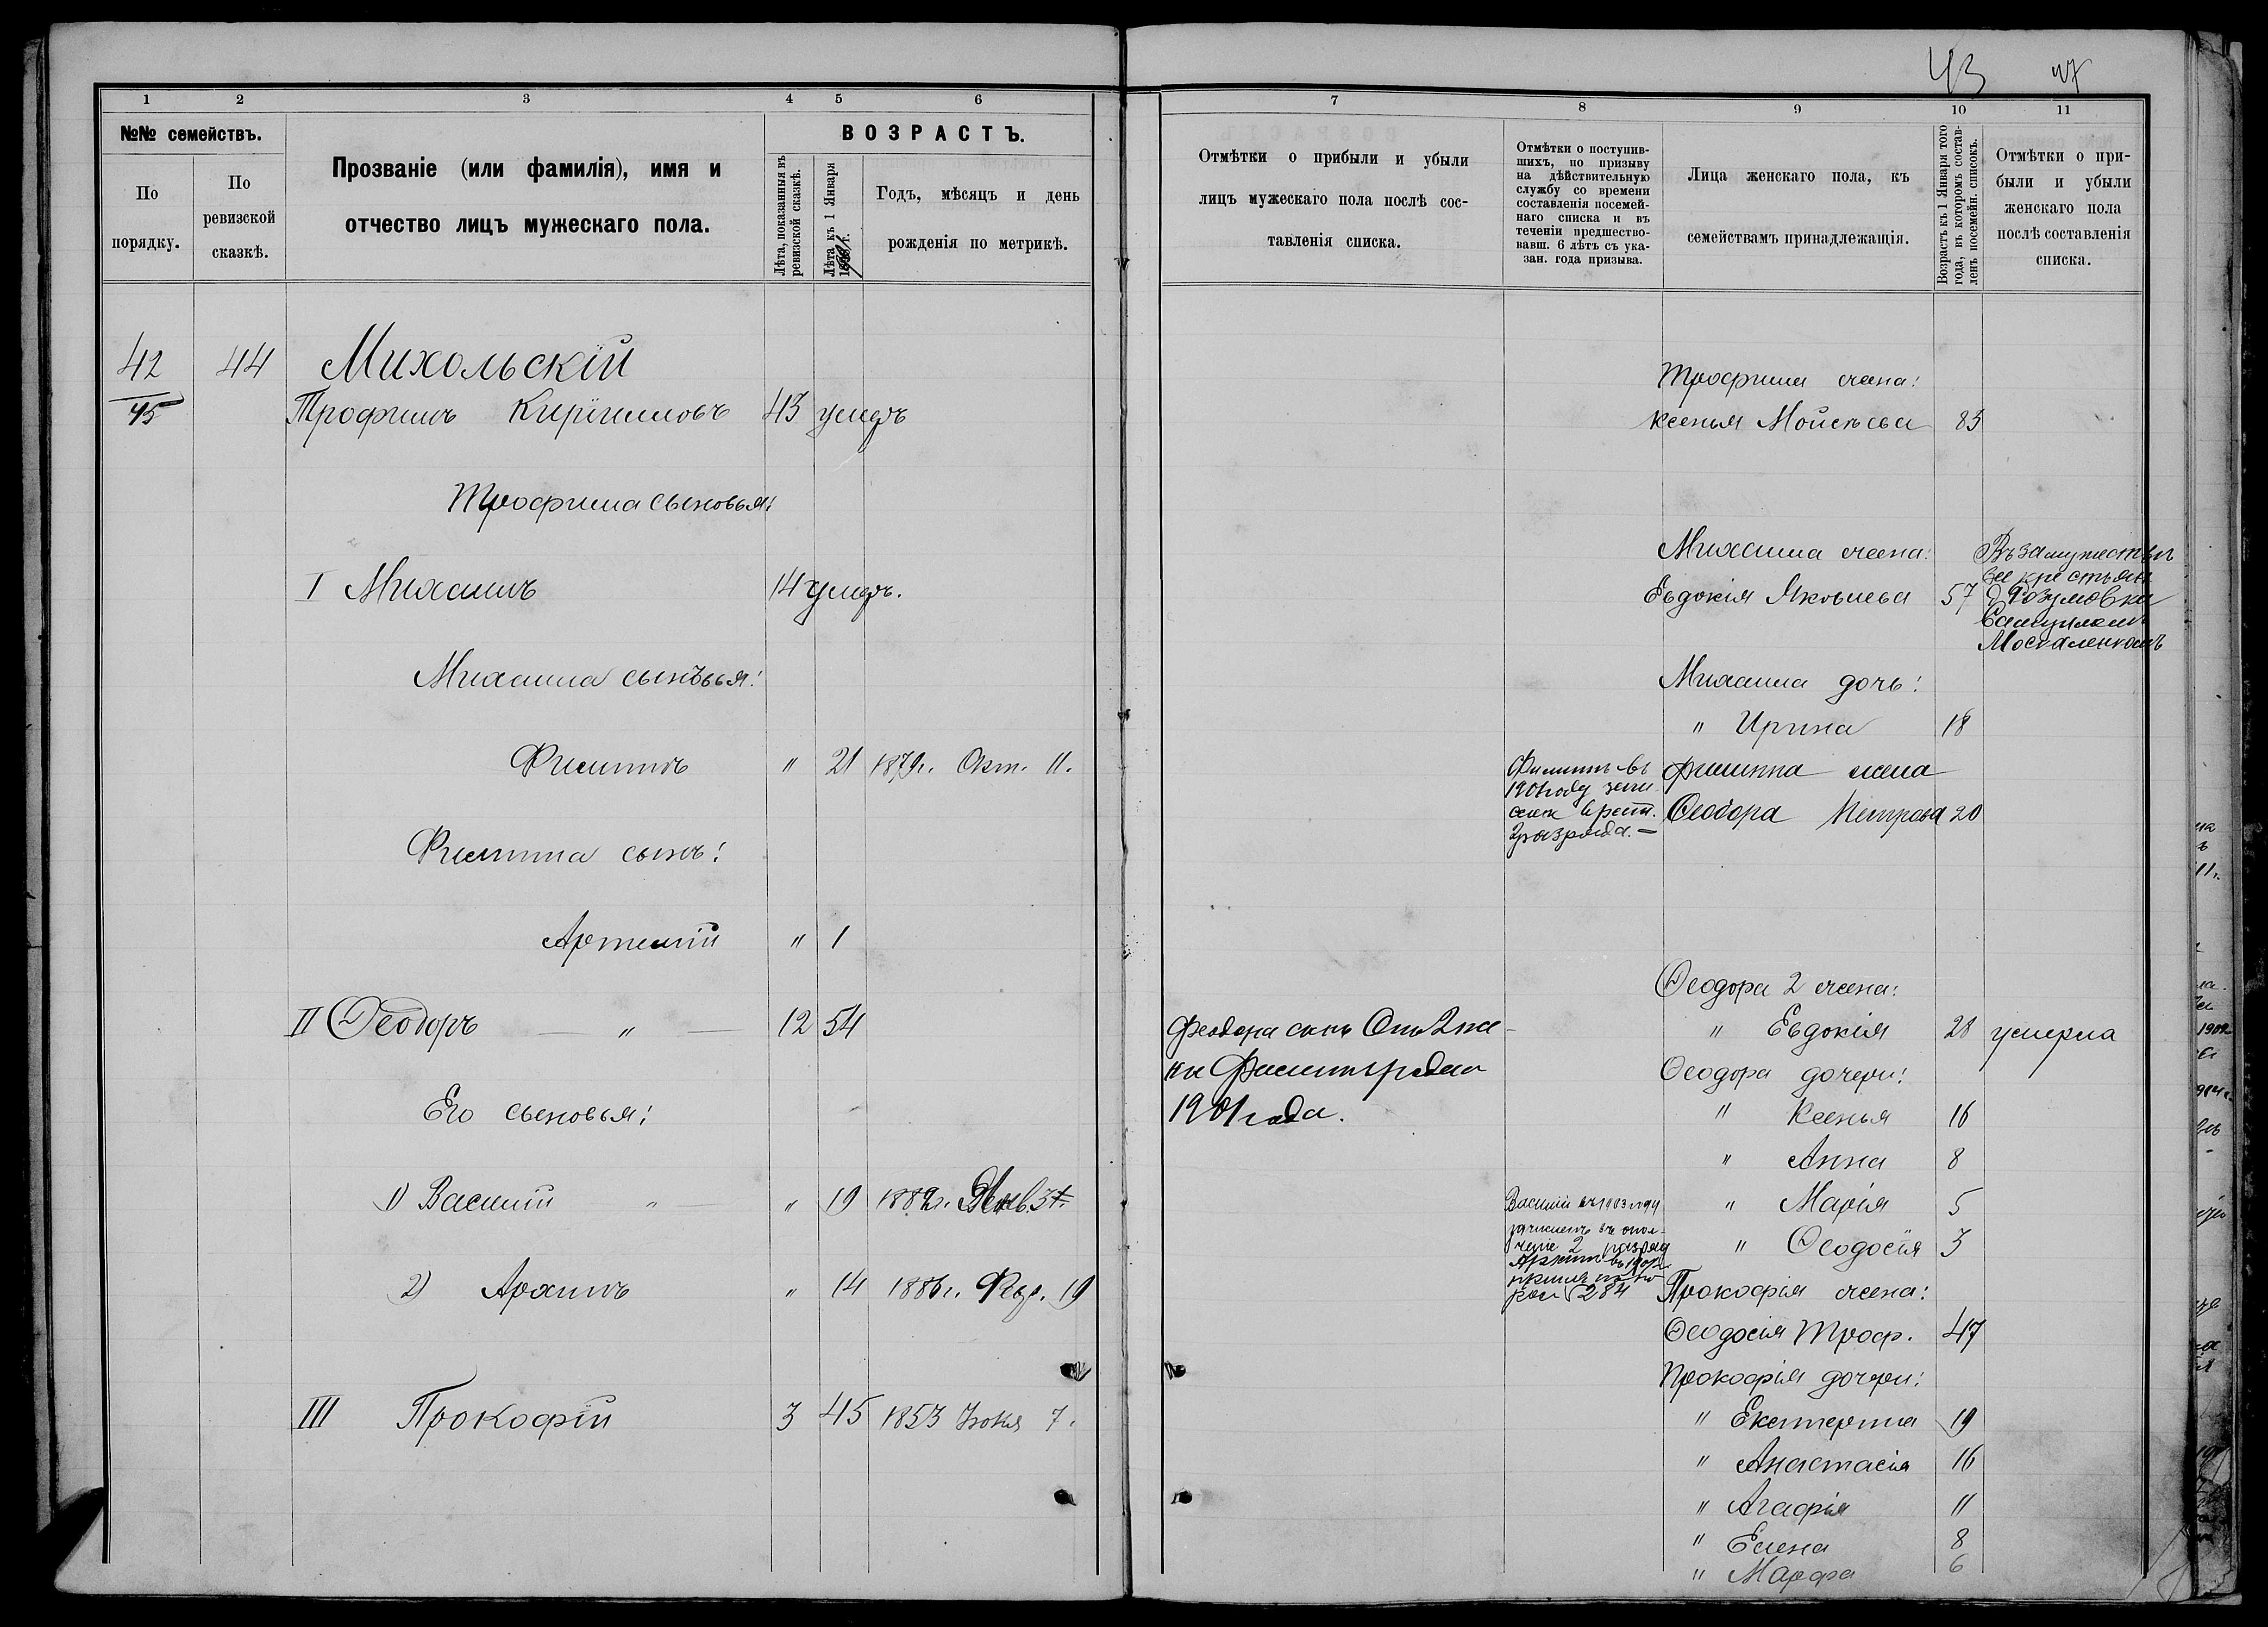 43 47
1 2 3 4 5 6
№№ семействъ.
По порядку.
По ревизской сказкѣ.
Прозваніе (или фамилія), имя и
отчество лицъ мужескаго пола.
ВОЗРАСТЪ.
Лѣта, показанныя въ
ревизской сказкѣ.
Лѣта къ 1 Января
Годъ, мѣсяцъ и день
рожденія по метрикѣ.
42 44 Михольскій
45 Трофимъ Кириловъ 43 умеръ
Трофима сыновья:
I Михаилъ 14 умеръ.
Михаила сыновья:
Филиппъ " 21 1879г. Окт. 11.
Филиппа сынъ:
Артемій " 1
II Ѳеодоръ — " — 12 54
Его сыновья:
1) Василій " — " 19 1882г. Янв. 31.
2) Архипъ " 14 1886г. Фев. 19
III Прокофій 3 45 1853 Іюня 7.
7 8 9 10 11
Отмѣтки о прибыли и убыли
лицъ мужескаго пола послѣ сос-
тавленія списка.
Отмѣтки о поступив-
шихъ, по призыву
на дѣйствительную
службу со времени
составленія посемей-
наго списка и въ
теченіи предшество-
вавш. 6 лѣтъ съ ука-
зан. года призыва.
Лица женскаго пола, къ
семействамъ принадлежащія.
Возрастъ къ 1 Января того
года, въ которомъ состав-
ленъ посемейн. списокъ.
Отмѣтки о при-
были и убыли
женскаго пола
послѣ составленія
списка.
Трофима жена:
Ксенья Мойсѣева 83
Михаила жена:
Евдокія Яковлева 57
Въ замужествѣ
за крестьян.
д Розумовка
Самуиломъ
Москаленкомъ
Михаила дочь:
" Ирина 18
Филиппъ въ
1901 году
2 разряда. —
Филиппа жена
Ѳеодора Петрова 20
Ѳеодора 2 жена:
Феодора сынъ
Филиппъ
1901 года.
" Евдокія 28 умерла
Ѳеодора дочери:
" Ксенья 16
" Анна 8
" Марія 5
" Ѳеодосія 3
Василій въ 1903 году
зачисленъ въ опол-
ченіе 2 разряд
Архипъ въ 1907г.
284
Прокофія жена:
Ѳеодосія Троф. 47
Прокофія дочери:
" Екатерина 19
" Анастасія 16
" Агафія 11
" Елена 8
" Марфа 6